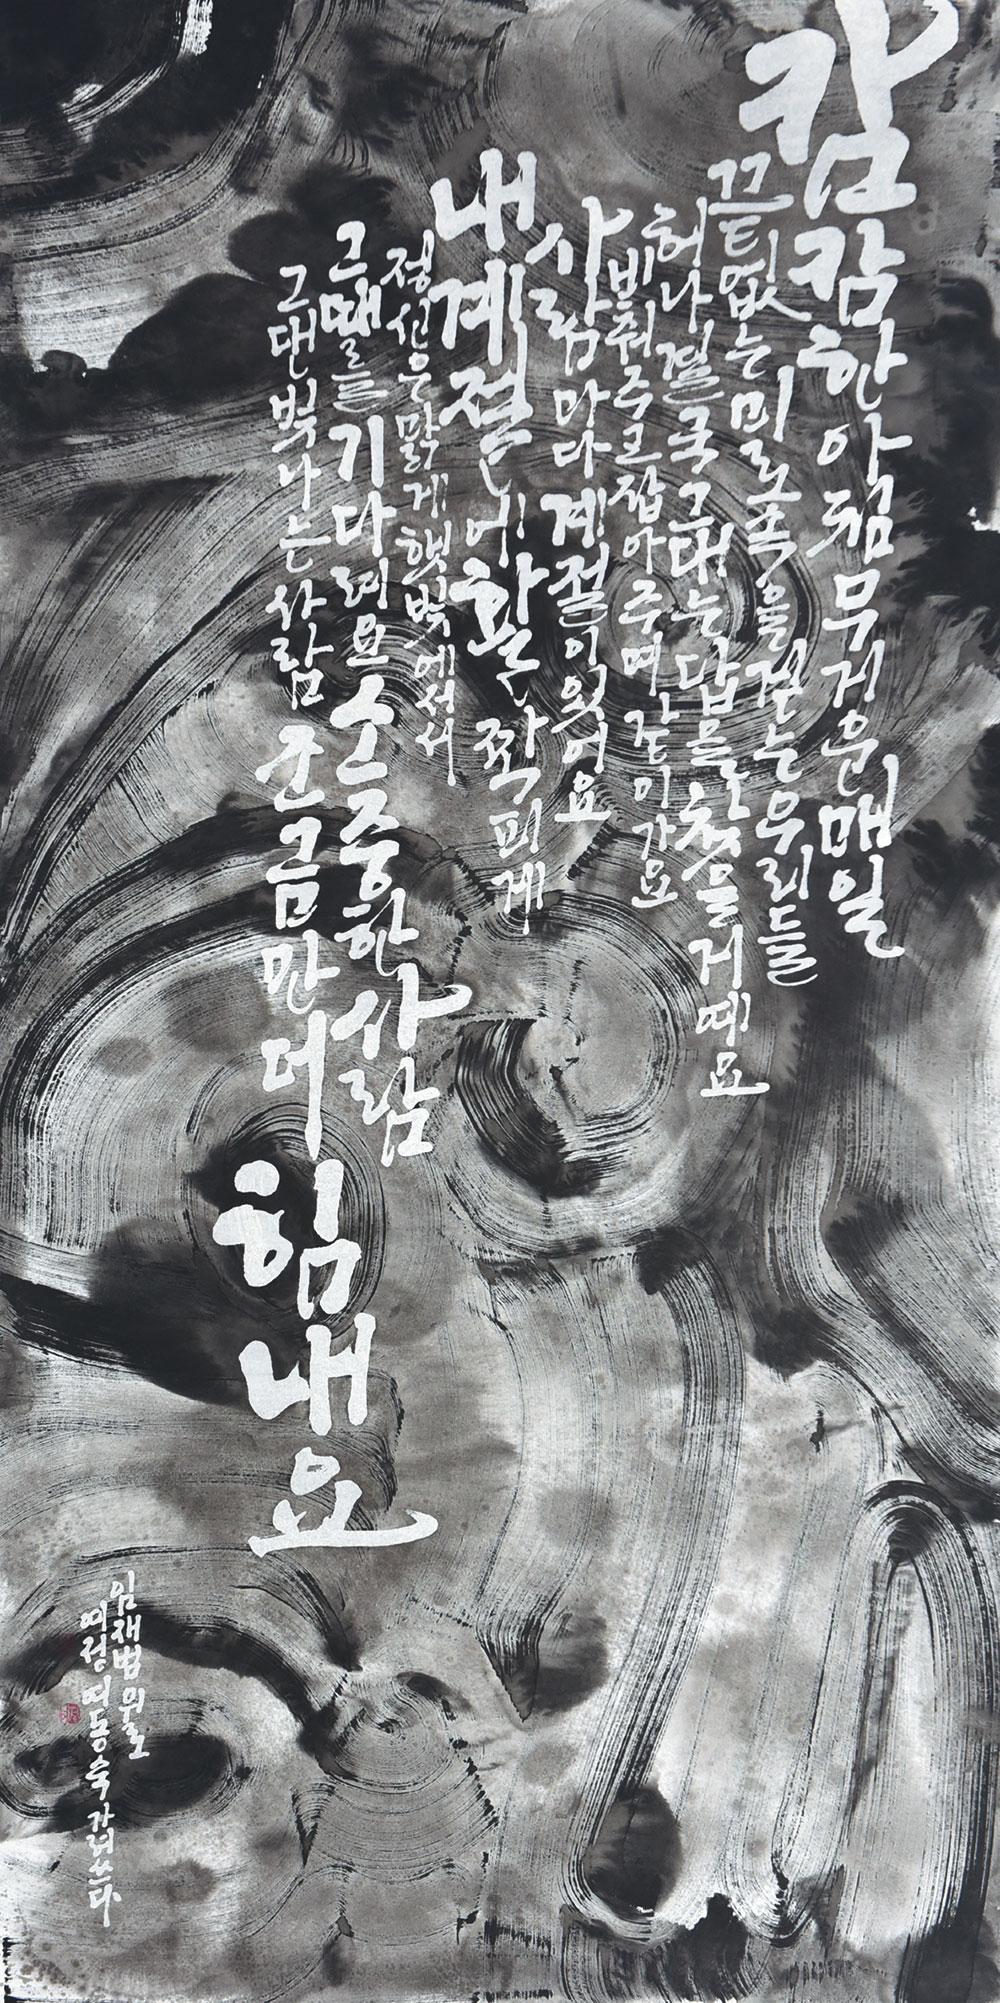 캄캄한 아침 무거운 매일
끝없는 미로 속을 걷는 우리들
허나 결국 그대는 답을 찾을 거예요
비춰주고 잡아주며 같이 가요
사람마다 계절이 있어요
내 계절에 활짝 피게
정신은 맑게 햇빛에 서서
그때를 기다려요 소중한 사람
그댄 빛나는 사람 조금만 더 힘내요
임재범 위로
여정 이동숙 가려쓰다